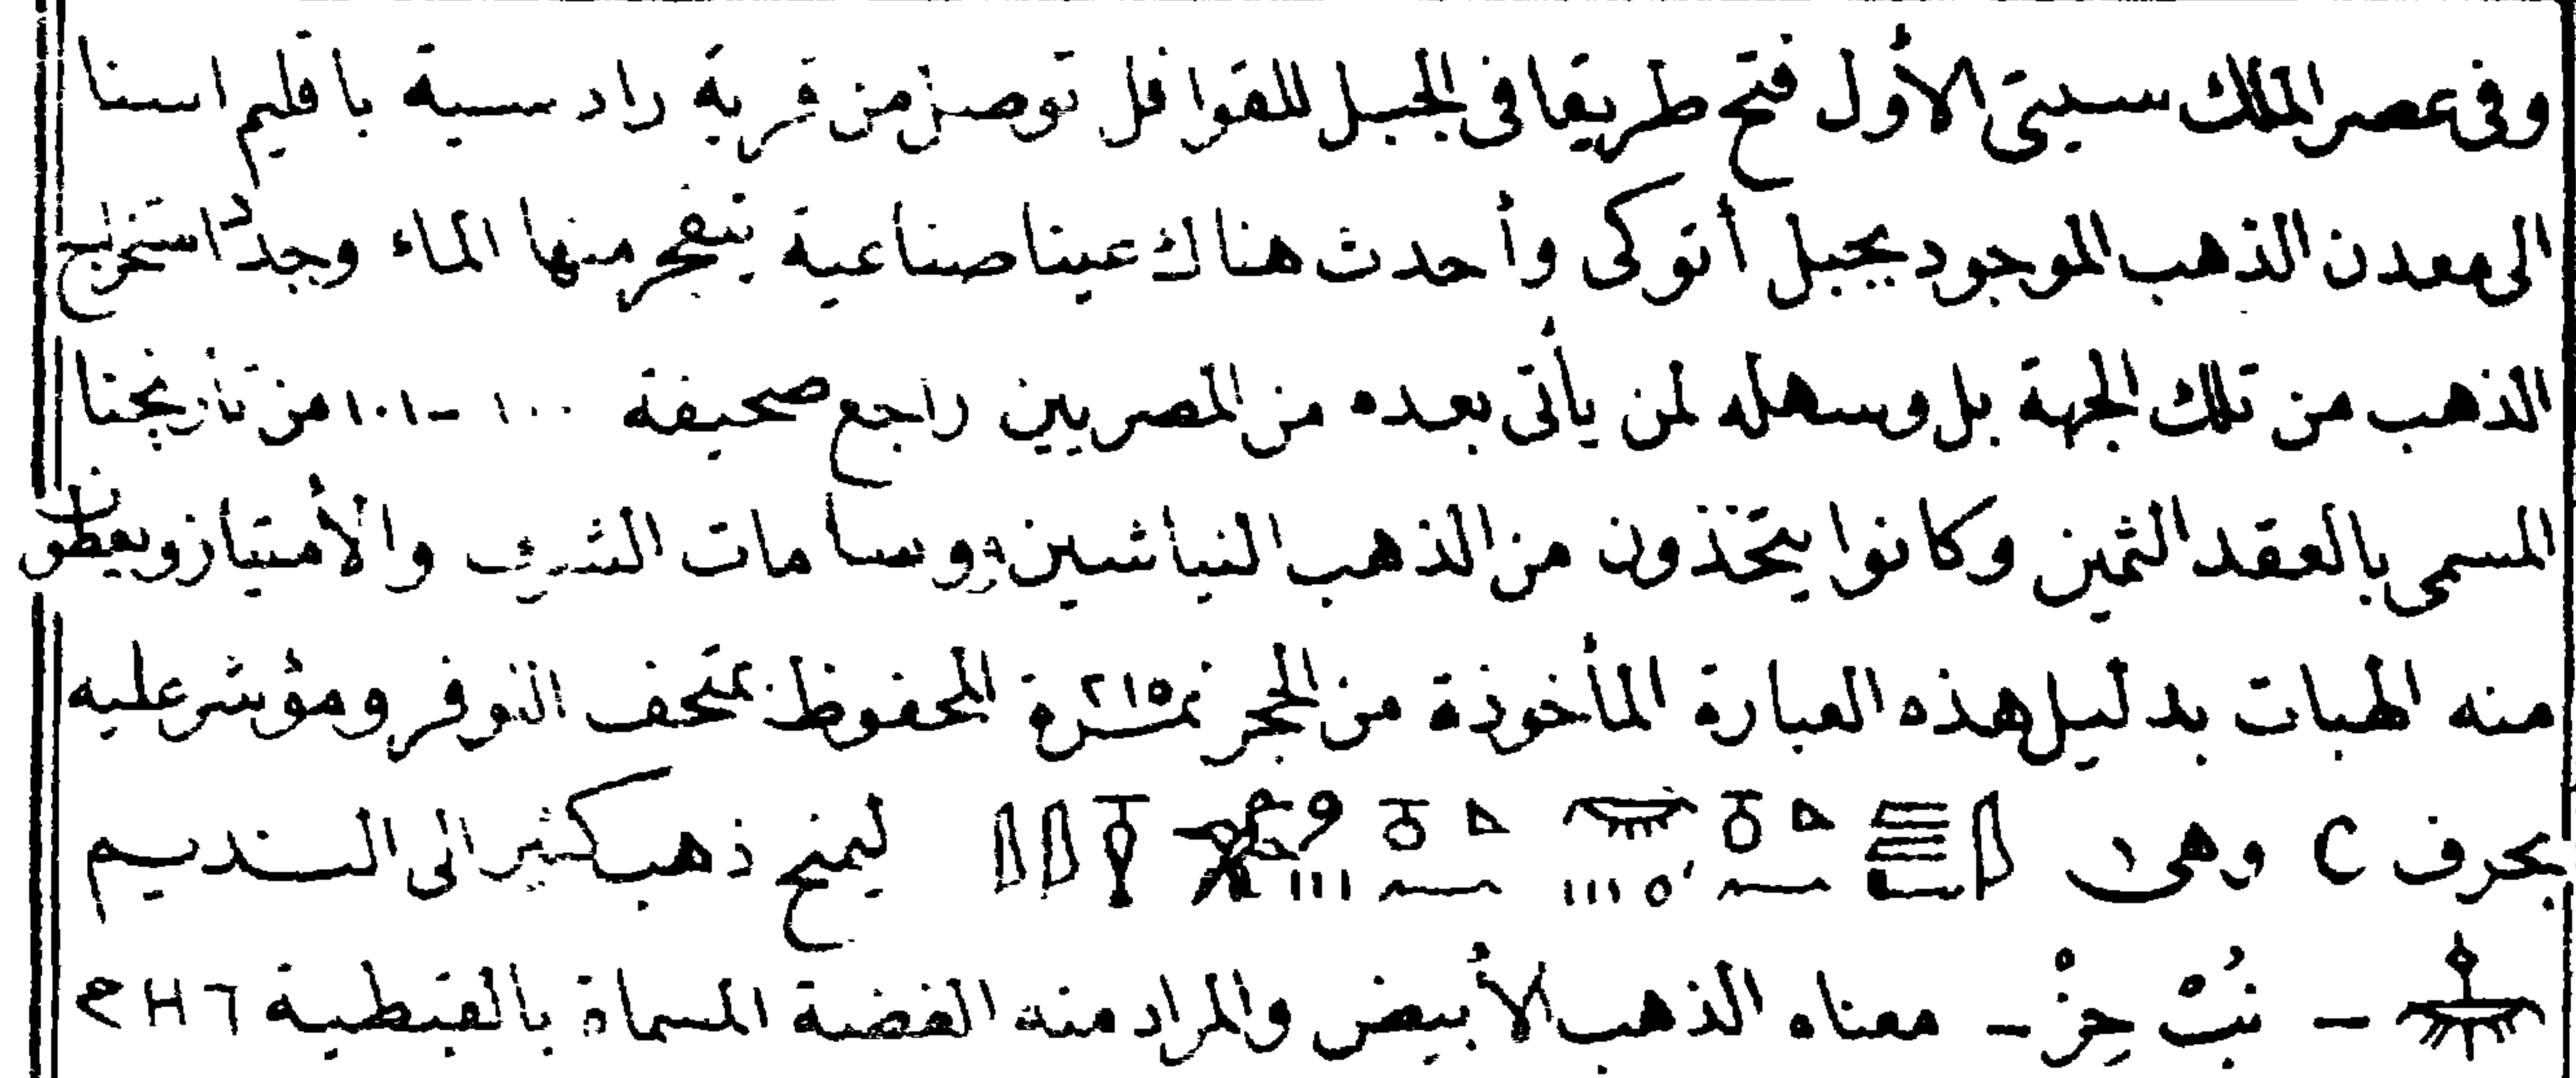 وفى عصر الملك سيتى الأول فتح طريقا فى الجبل للقوافل توصل من قرية رادسية باقليم اسنا
الى معدن الذهب الموجود بجبل أتوكى وأحدث هناك عينا صناعية ينفجر منها الماء وجدّ استخراج
الذهب من تلك الجهة بل وسهله لمن يأتى بعده من المصريين راجع صحيفة ١٠٠-١٠١ من تاريخنا
المسمى بالعقد الثمين وكانوا يتخذون من الذهب النياشين ووسامات الشرف والأمتياز ويعطون
منه الهبات بدليل هذه العبارة المأخوذة من الحجر نمرة ٢١٥ المحفوظ بمتحف اللوفر ومؤشر عليه
بحرف C وهى ليمنح ذهب كثير الى النديم
– نُبْ حِزْ – معناه الذهب الأبيض والمراد منه الفضة المسماة بالقبطية